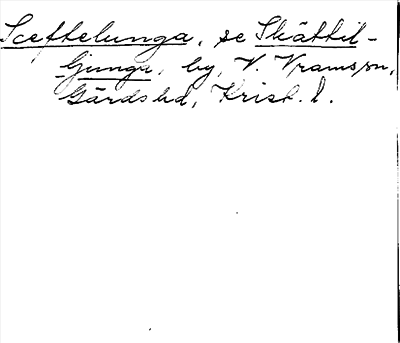 Sceftelunga, se Skättil-
Ljunga, by, V. Vramssn,
Gärds hd, Krist. l.